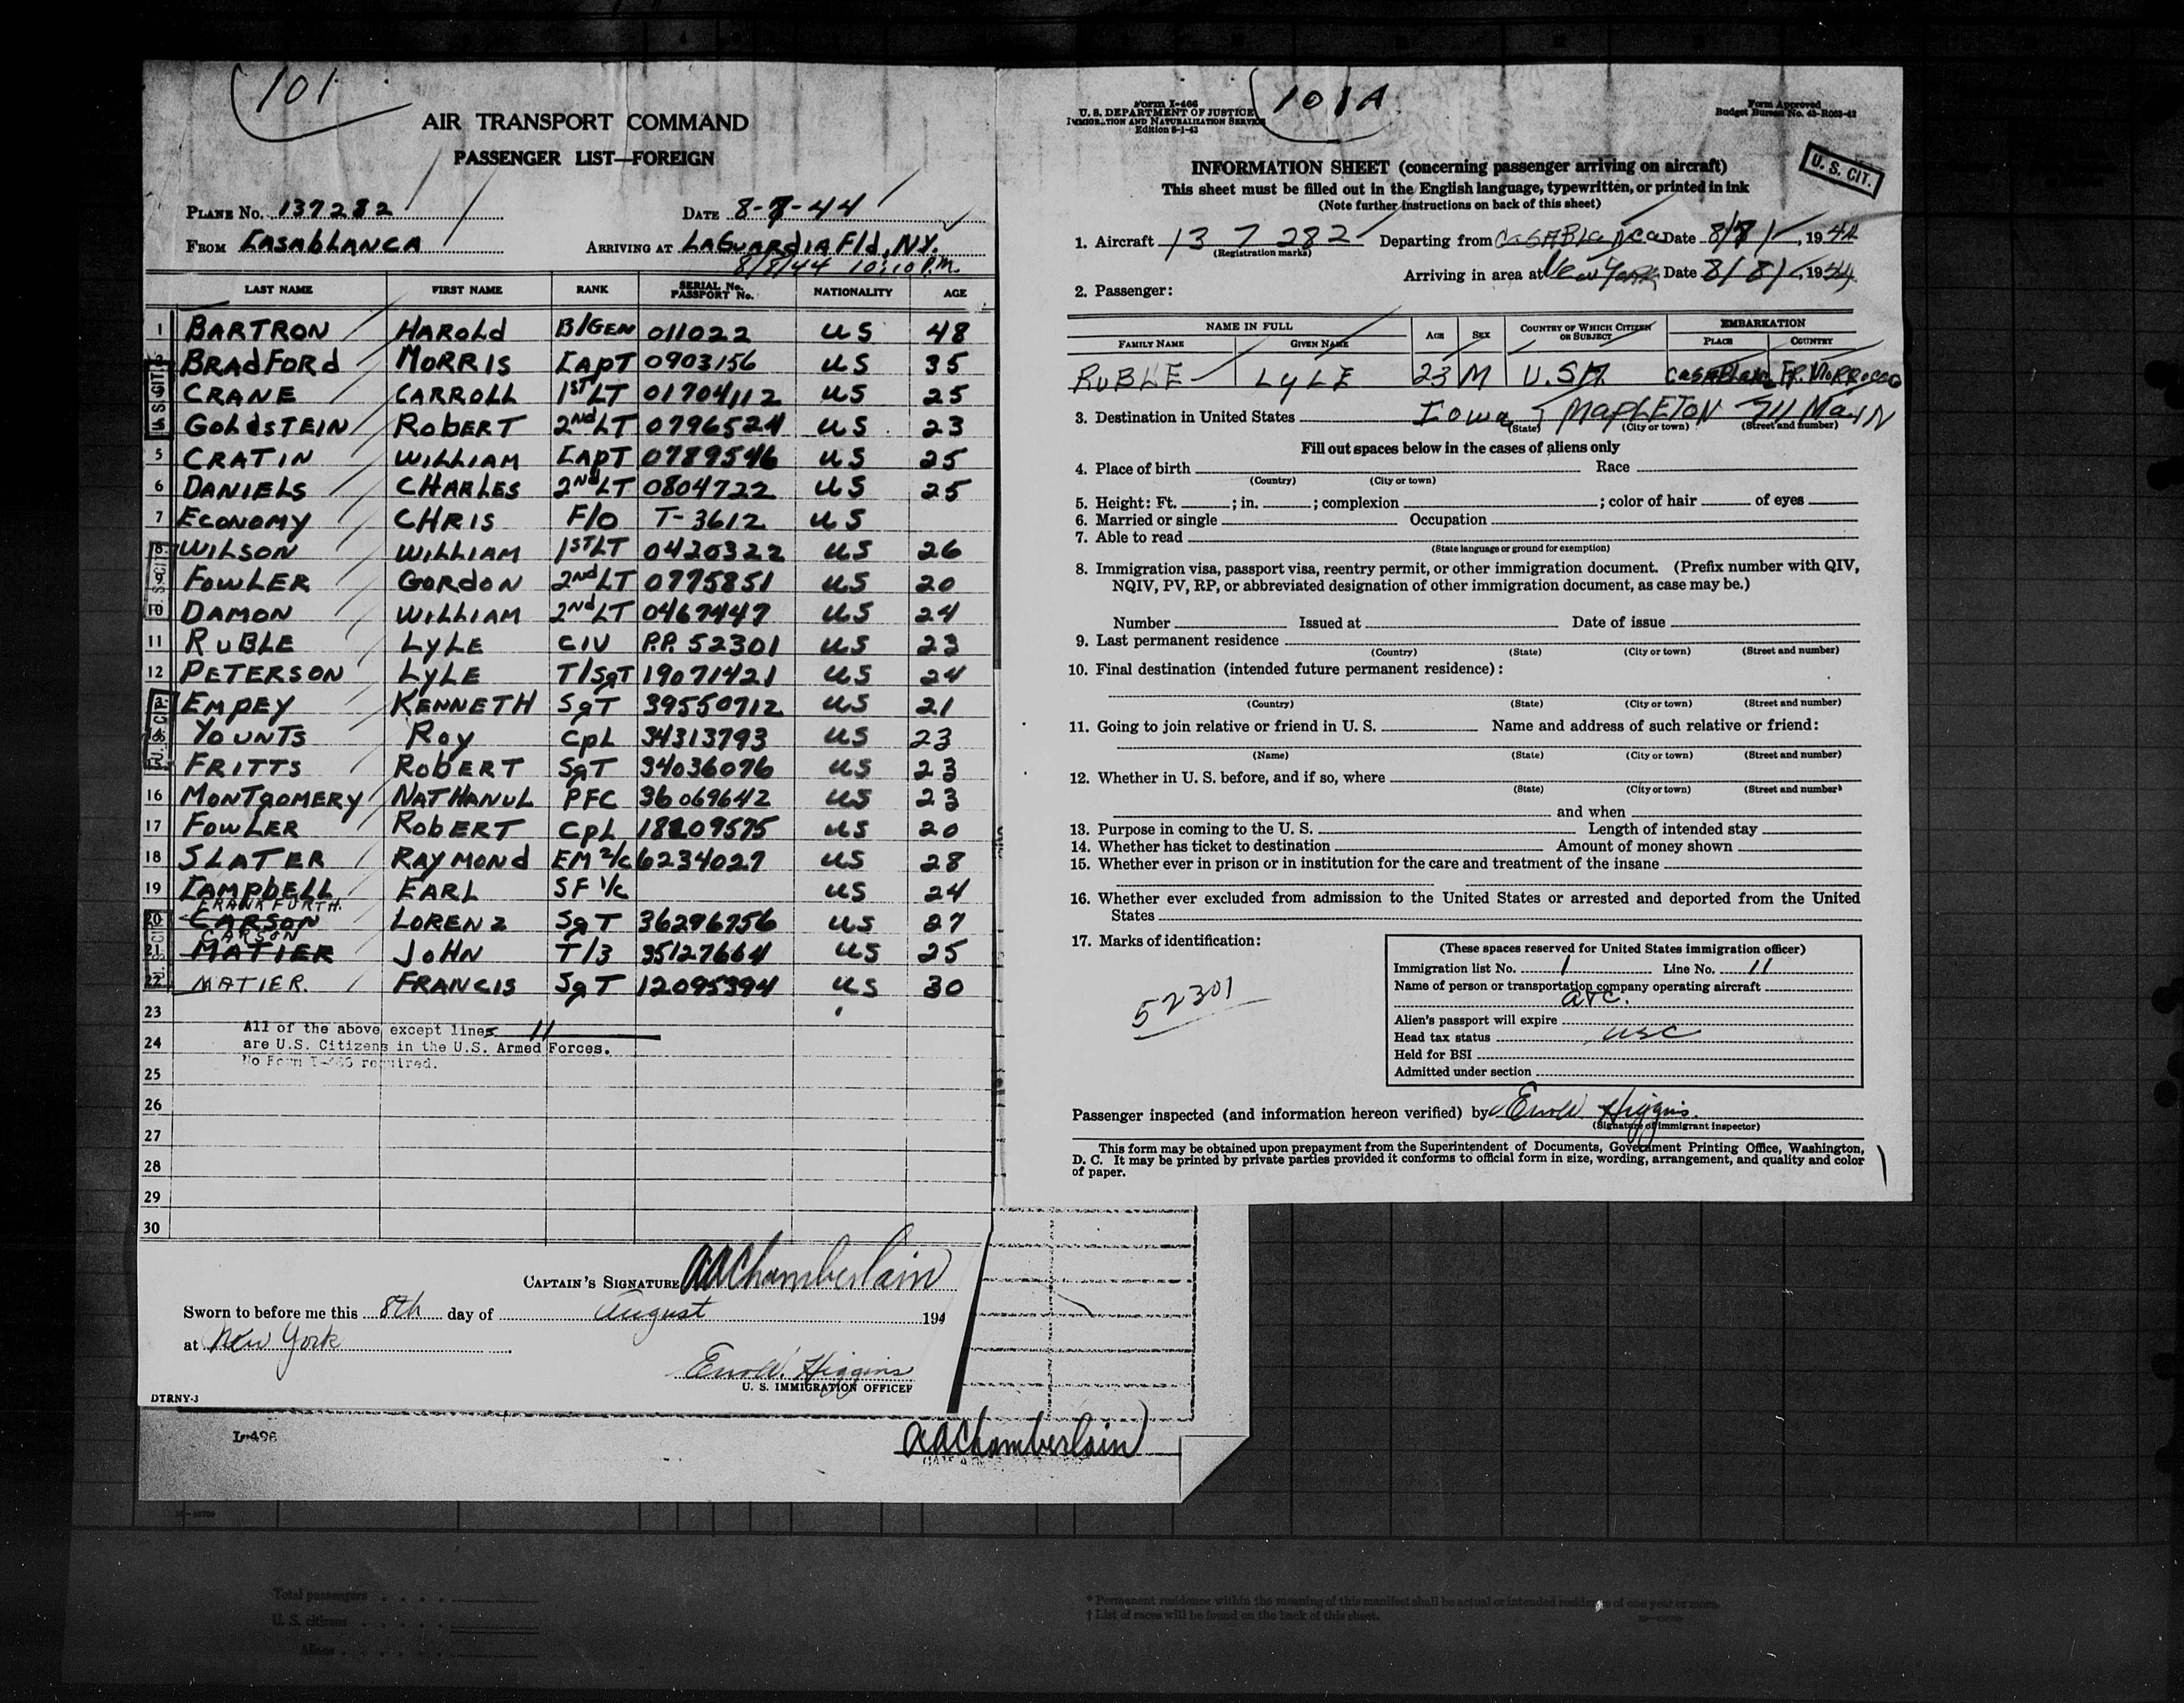 101
AIR TRANSPORT COMMAND
PASSENGER LIST—FOREIGN
PLANE NO. 137282 DATE 8-7-44
FROM CASABLANCA ARRIVING AT LAGUARDIA Fld, N.Y.
8/8/44 10:10 P.M.
LAST NAME FIRST NAME RANK SERIAL NO. PASSPORT NO. NATIONALITY AGE
1 BARTRON HAROLD B/GEN 011022 US 48
BRADFORD MORRIS CAPT 0903156 US 35
CRANE CARROLL 1ST LT 01704112 US 25
GOLDSTEIN ROBERT 2nd LT 0796524 US 23
5 CRATIN WILLIAM CAPT 0789546 US 25
6 DANIELS CHARLES 2nd LT 0804722 US 25
7 ECONOMY CHRIS F/O T-3612 US
8 WILSON WILLIAM 1ST LT 0420322 US 26
9 FOWLER GORDON 2nd LT 0775851 US 20
10 DAMON WILLIAM 2nd LT 0467447 US 24
11 RUBLE LYLE CIV P.P. 52301 US 23
12 PETERSON LYLE T/SGT 19071421 US 24
EMPEY KENNETH SGT 39550712 US 21
YOUNTS ROY CPL 34313793 US 23
FRITTS ROBERT SGT 34036076 US 23
16 MONTGOMERY NATHANUL PFC 36069642 US 23
17 FOWLER ROBERT CPL 18209575 US 20
18 SLATER RAYMOND EM 2/c 6234027 US 28
19 CAMPBELL EARL SF 1/c US 24
FRANKFURTH.
20 CARSON LORENZ SGT 36296756 US 27
CARSON
21 MATIER JOHN T/3 35127664 US 25
22 MATIER. FRANCIS SGT 12095394 US 30
23
All of the above except lines 11
24 are U.S. Citizens in the U.S. Armed Forces.
No Form I-466 required.
25
26
27
28
29
30
CAPTAIN'S SIGNATURE AA Chamberlain
Sworn to before me this 8th day of August 194
at New York
Errol W. Higgins
U. S. IMMIGRATION OFFICER
DTRNY-3
I-496
AA Chamberlain
Total passengers
U. S. citizens
Aliens
Form I-466
U. S. DEPARTMENT OF JUSTICE
IMMIGRATION AND NATURALIZATION SERVICE
Edition 8-1-43
101A
Form Approved
Budget Bureau No. 43-R063-42
U. S. CIT.
INFORMATION SHEET (concerning passenger arriving on aircraft)
This sheet must be filled out in the English language, typewritten, or printed in ink
(Note further instructions on back of this sheet)
1. Aircraft 137282 Departing from CASABLANCA Date 8/7/, 1944
(Registration marks)
Arriving in area at New York Date 8/8/, 1944
2. Passenger:
NAME IN FULL AGE SEX COUNTRY OF WHICH CITIZEN OR SUBJECT EMBARKATION
FAMILY NAME GIVEN NAME PLACE COUNTRY
RUBLE LYLE 23 M U.S.A. CASABLANCA FR. MORROCCO
3. Destination in United States Iowa MAPLETON 711 MAIN
(State) (City or town) (Street and number)
Fill out spaces below in the cases of aliens only
4. Place of birth Race
(Country) (City or town)
5. Height: Ft. ; in. ; complexion ; color of hair of eyes
6. Married or single Occupation
7. Able to read
(State language or ground for exemption)
8. Immigration visa, passport visa, reentry permit, or other immigration document. (Prefix number with QIV,
NQIV, PV, RP, or abbreviated designation of other immigration document, as case may be.)
Number Issued at Date of issue
9. Last permanent residence
(Country) (State) (City or town) (Street and number)
10. Final destination (intended future permanent residence):
(Country) (State) (City or town) (Street and number)
11. Going to join relative or friend in U. S. Name and address of such relative or friend:
(Name) (State) (City or town) (Street and number)
12. Whether in U. S. before, and if so, where
(State) (City or town) (Street and number)
and when
13. Purpose in coming to the U. S. Length of intended stay
14. Whether has ticket to destination Amount of money shown
15. Whether ever in prison or in institution for the care and treatment of the insane
16. Whether ever excluded from admission to the United States or arrested and deported from the United
States
17. Marks of identification:
52301
(These spaces reserved for United States immigration officer)
Immigration list No. 1 Line No. 11
Name of person or transportation company operating aircraft
ATC.
Alien's passport will expire
Head tax status USC
Held for BSI
Admitted under section
Passenger inspected (and information hereon verified) by Errol W. Higgins.
(Signature of immigrant inspector)
This form may be obtained upon prepayment from the Superintendent of Documents, Government Printing Office, Washington,
D. C. It may be printed by private parties provided it conforms to official form in size, wording, arrangement, and quality and color
of paper.
* Permanent residence within the meaning of this manifest shall be actual or intended residence of one year or more.
† List of races will be found on the back of this sheet.